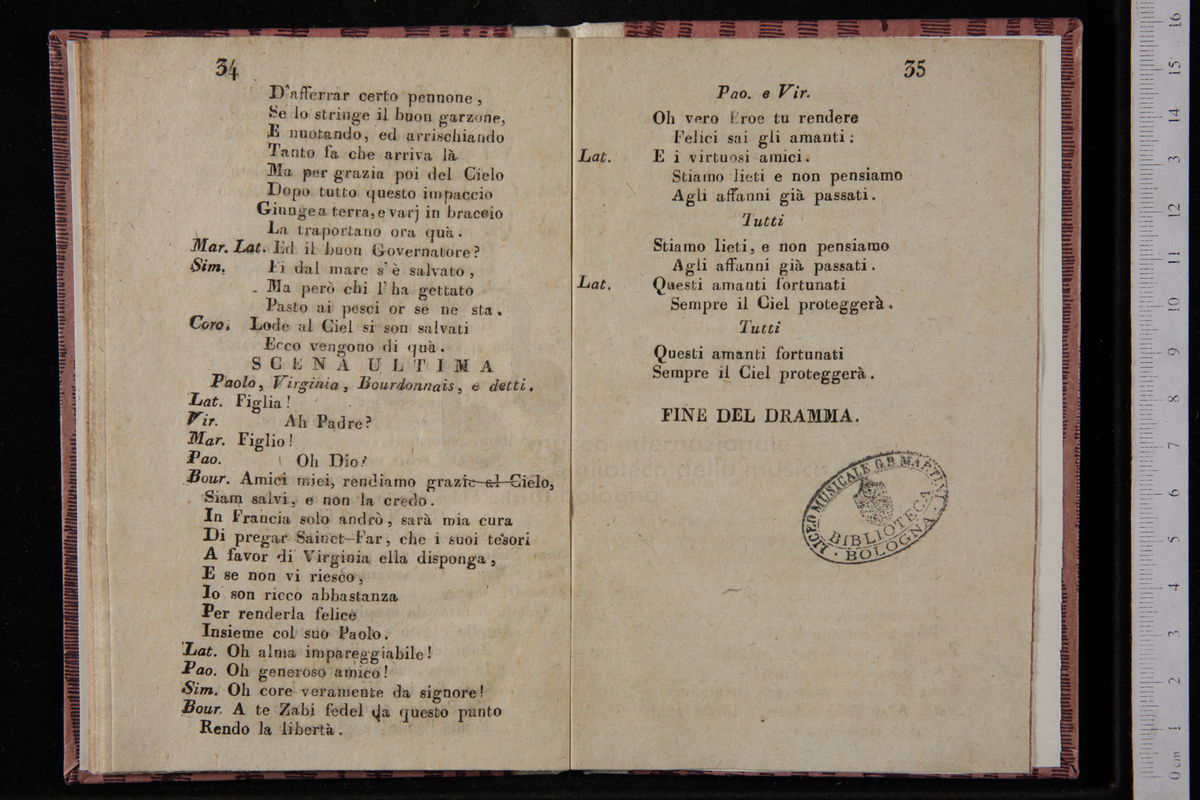 34
D'afferrar certo pennone,
Se lo stringe il buon garzone,
E nuotando, ed arrischiando
Tanto fa che arriva là
Ma per grazia poi del Cielo
Dopo tutto questo impaccio
Giunge a terra, e varj in braccio
La traportano ora quà.
Mar. Lat. Ed il buon Governatore?
Sim. Ei dal mare s'è salvato,
Ma però chi l'ha gettato
Pasto ai pesci or se ne sta.
Coro. Lode al Ciel si son salvati
Ecco vengono di quà.
SCENA ULTIMA
Paolo, Virginia, Bourdonnais, e detti.
Lat. Figlia!
Vir. Ah Padre?
Mar. Figlio!
Pao. Oh Dio!
Bour. Amici miei, rendiamo grazie al Cielo,
Siam salvi, e non la credo.
In Francia solo andrò, sarà mia cura
Di pregar Sainct-Far, che i suoi tesori
A favor di Virginia ella disponga,
E se non vi riesco,
Io son ricco abbastanza
Per renderla felice
Insieme col suo Paolo.
Lat. Oh alma impareggiabile!
Pao. Oh generoso amico!
Sim. Oh core veramente da signore!
Bour. A te Zabi fedel da questo punto
Rendo la libertà.
35
Pao. e Vir.
Oh vero Eroe tu rendere
Felici sai gli amanti:
Lat. E i virtuosi amici.
Stiamo lieti e non pensiamo
Agli affanni già passati.
Tutti
Stiamo lieti, e non pensiamo
Agli affanni già passati.
Lat. Questi amanti fortunati
Sempre il Ciel proteggerà.
Tutti
Questi amanti fortunati
Sempre il Ciel proteggerà.
FINE DEL DRAMMA.
LICEO MUSICALE G.B. MARTINI
BIBLIOTECA
BOLOGNA
museo internazionale
e biblioteca della musica
di bologna
0 cm 1 2 3 4 5 6 7 8 9 10 11 12 13 14 15 16